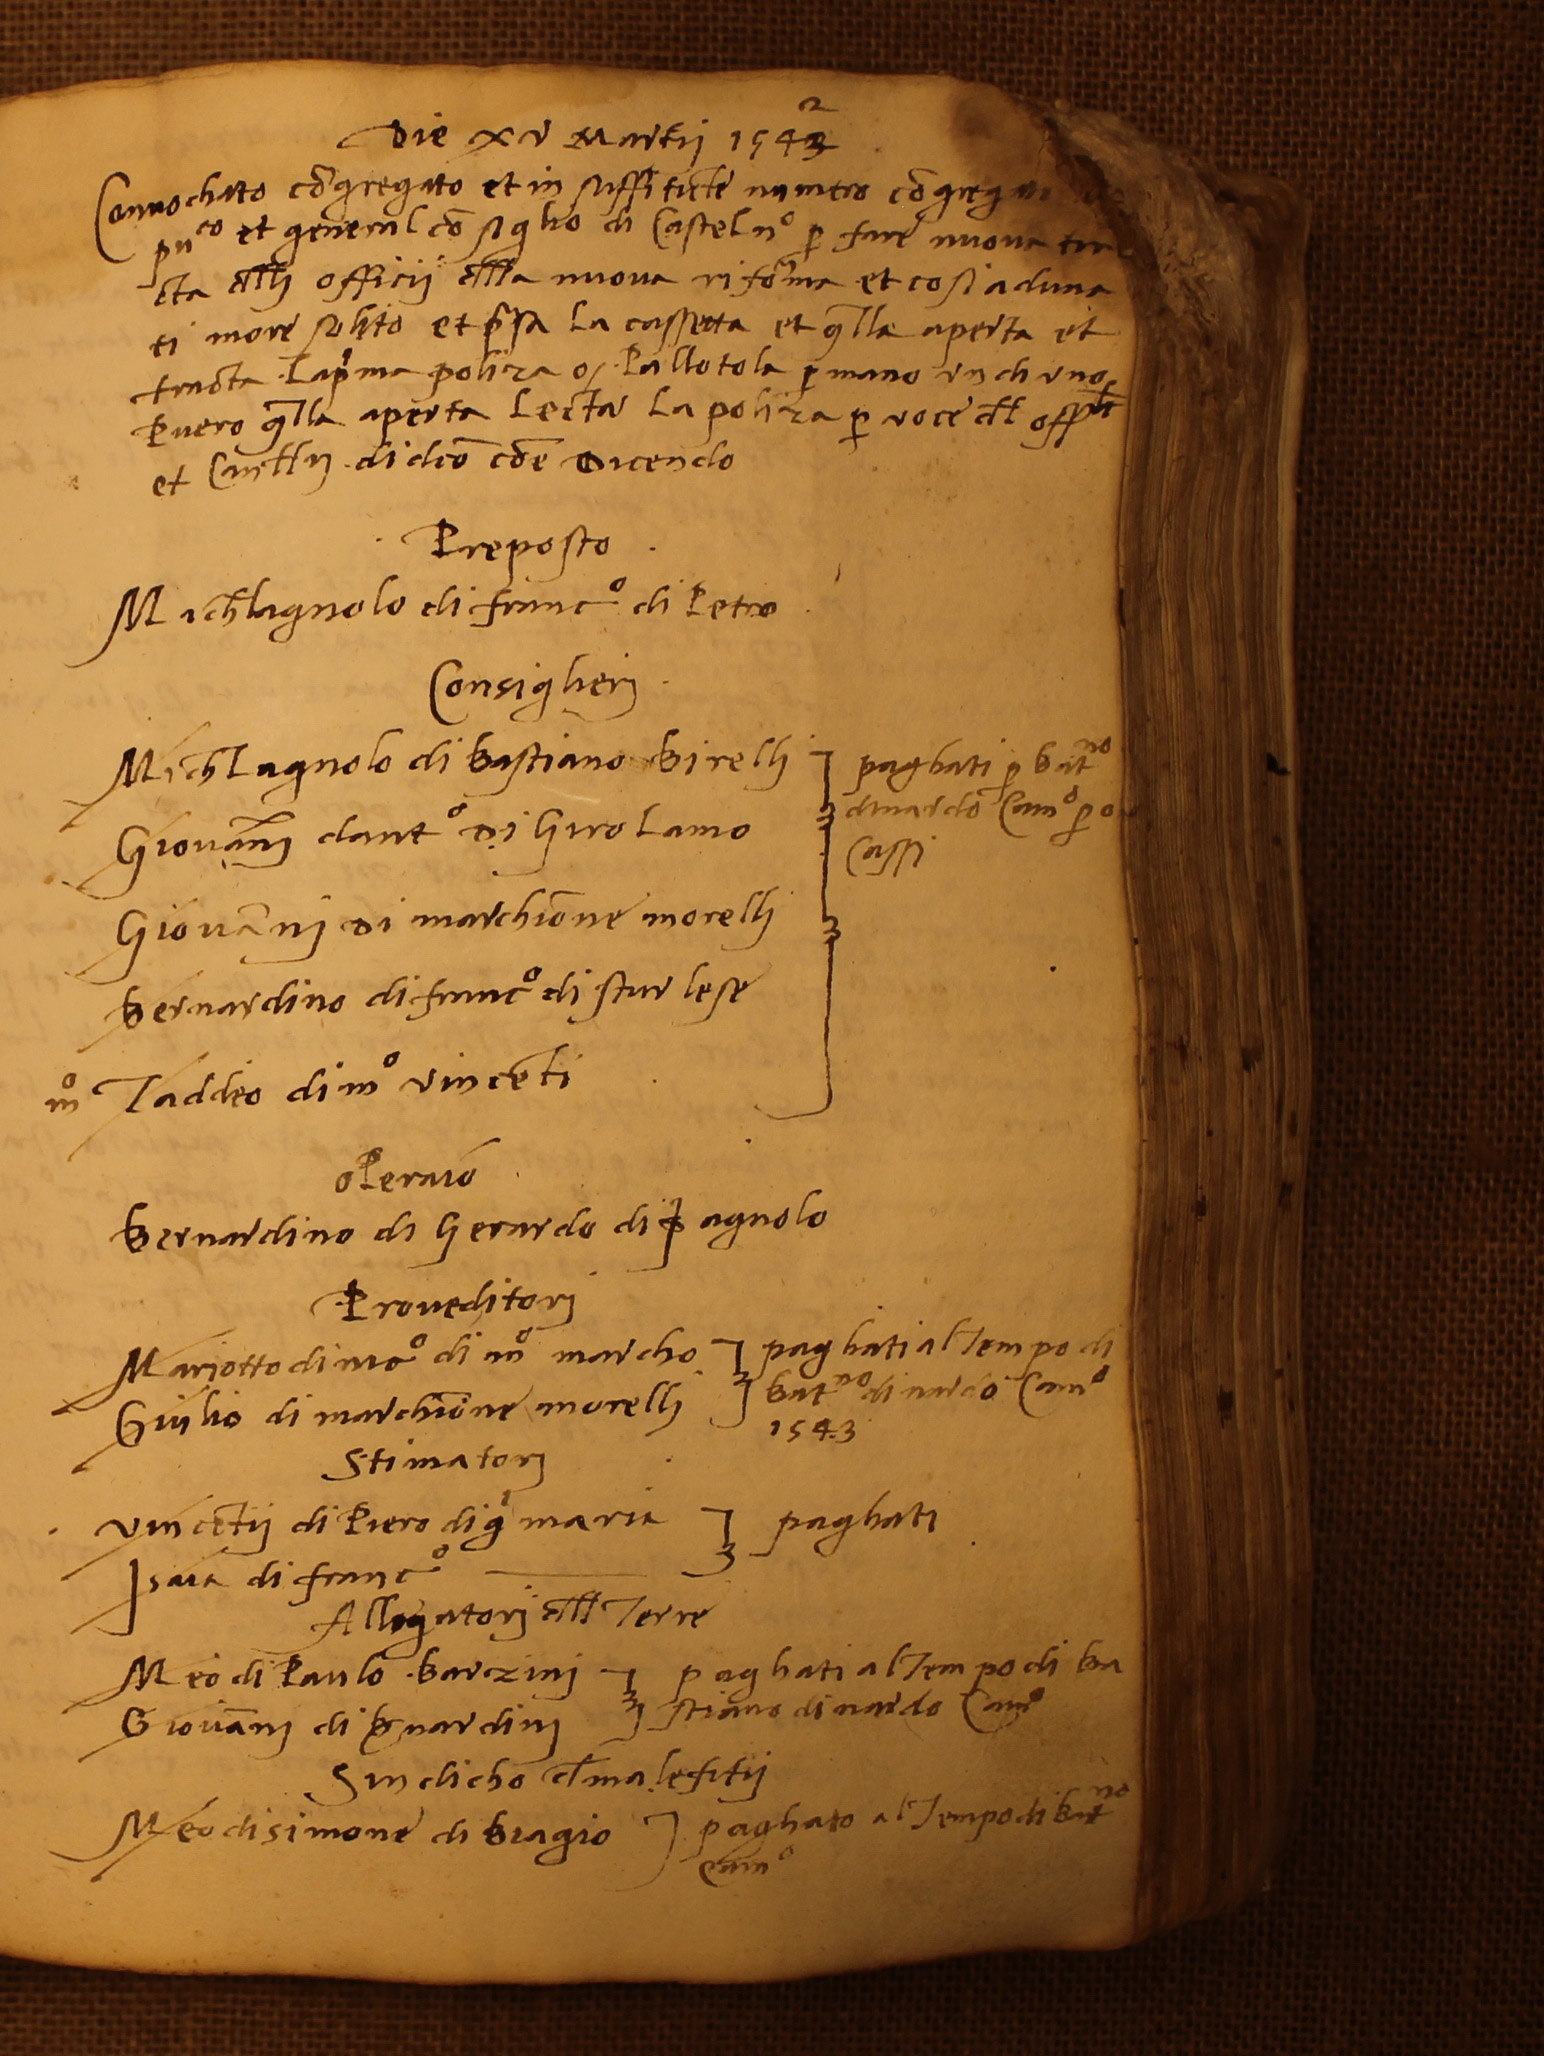 Die xv Martij 1543 2
Convochato cōgregato et in suffitiēte numero cōgregato
puco et general cōsiglio di Casteln° p fare nuova tra
cta dlli officij dlla nuova rifōma et cosi aduna
ti more solito et psa la cassetta et qlla aperta et
tracta la pma poliza o/ pallotola p mano un di uno
puero qlla aperta lecta la poliza p voce dl
et Canllri di dco cōe dicendo
Preposto
Michlagnolo di franc° di Petro
Consiglierj
Michlagnolo di bastiano birellj
Giovānj dant° di Girolamo
Giovānj di marchiōne morellj
bernardino di franc° di sturlese
m° Taddeo di m° vincēti
paghati p batno
dinardo Cam° p
Cassj
operaio
bernardino di Gerardo di pagnolo
Proveditorj
Mariotto di mo° di m° marcho
Giulio di marchiōne morellj
paghati al Tempo di
batno di nardo Cam°
1543
Stimatorj
vincētij di Piero di maria
Isaia di franc°
paghati
Allogatorj dlle Terre
Meo di Paulo barzinj
Giovānj di bnardinj
paghati al Tempo di ba
stiano di nardo Cam°
Sindicho dl malefitij
Meo di simone di biagio
paghato al Tempo di batno
Cam°